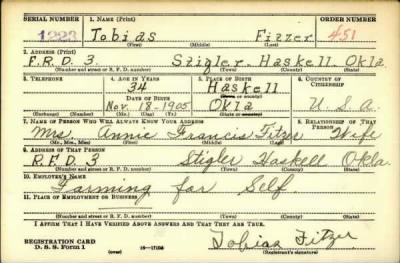 SERIAL NUMBER 1. NAME (Print) ORDER NUMBER
1223 Tobias Fitzer 451
(First) (Middle) (Last)
2. ADDRESS (Print)
F.R.D. 3. Stigler Haskell Okla
(Number and street or R. F. D. number) (Town) (County) (State)
3. TELEPHONE 4. AGE IN YEARS 5. PLACE OF BIRTH 6. COUNTRY OF CITIZENSHIP
34 Haskell
DATE OF BIRTH (Town or county)
Nov. 18-1905 Okla U.S.A.
(Exchange) (Number) (Mo.) (Day) (Yr.) (State or country)
7. NAME OF PERSON WHO WILL ALWAYS KNOW YOUR ADDRESS 8. RELATIONSHIP OF THAT PERSON
Mrs. Annie Francis Fitzer Wife
(Mr., Mrs., Miss) (First) (Middle) (Last)
9. ADDRESS OF THAT PERSON
R.F.D. 3 Stigler Haskell Okla.
(Number and street or R. F. D. number) (Town) (County) (State)
10. EMPLOYER'S NAME
Farming for Self
11. PLACE OF EMPLOYMENT OR BUSINESS
(Number and street or R. F. D. number) (Town) (County) (State)
I AFFIRM THAT I HAVE VERIFIED ABOVE ANSWERS AND THAT THEY ARE TRUE.
REGISTRATION CARD
D. S. S. Form 1 (over) Tobias Fitzer
(Registrant's signature)